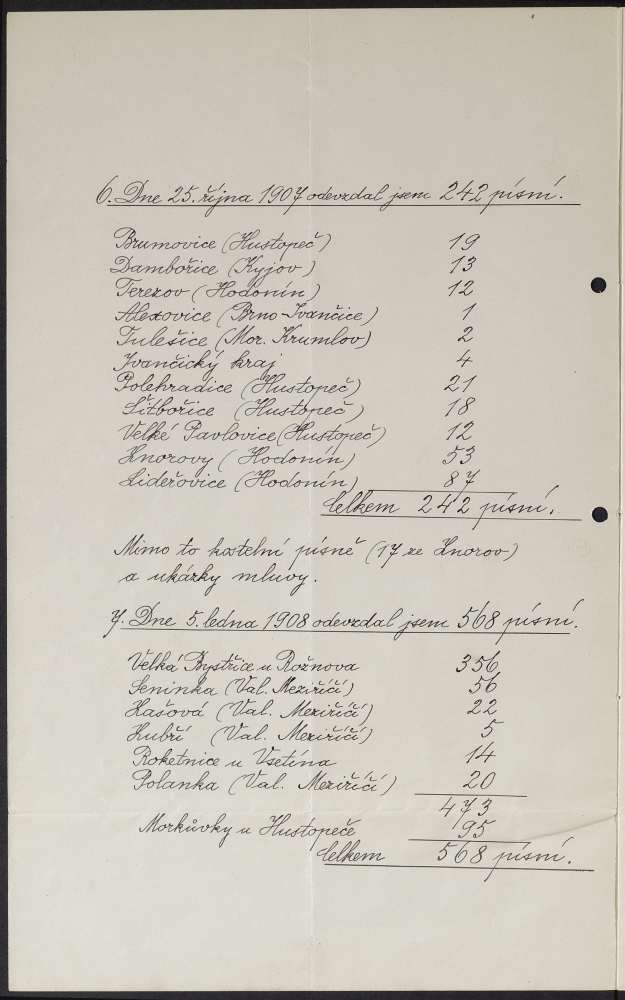 6. Dne 25. října 1907 odevzdal jsem 242 písní.
Brumovice (Hustopeč) 19
Dambořice (Kyjov) 13
Terezov (Hodonín) 12
Alexovice (Brno-Ivančice) 1
Tulešice (Mor. Krumlov) 2
Ivančický kraj 4
Bolehradice (Hustopeč) 21
Šitbořice (Hustopeč) 18
Velké Pavlovice (Hustopeč) 12
Znorovy (Hodonín) 53
Lideřovice (Hodonín) 87
Celkem 242 písní.
Mimo to kostelní písně (17 ze Znorov)
a ukázky mluvy.
7. Dne 5. ledna 1908 odevzdal jsem 568 písní.
Velká Bystřice u Rožnova 356
Seninka (Val. Meziříčí) 56
Zašová (Val. Meziříčí) 22
Zubří (Val. Meziříčí) 5
Roketnice u Vsetína 14
Polanka (Val. Meziříčí) 20
473
Morkůvky u Hustopeče 95
Celkem 568 písní.